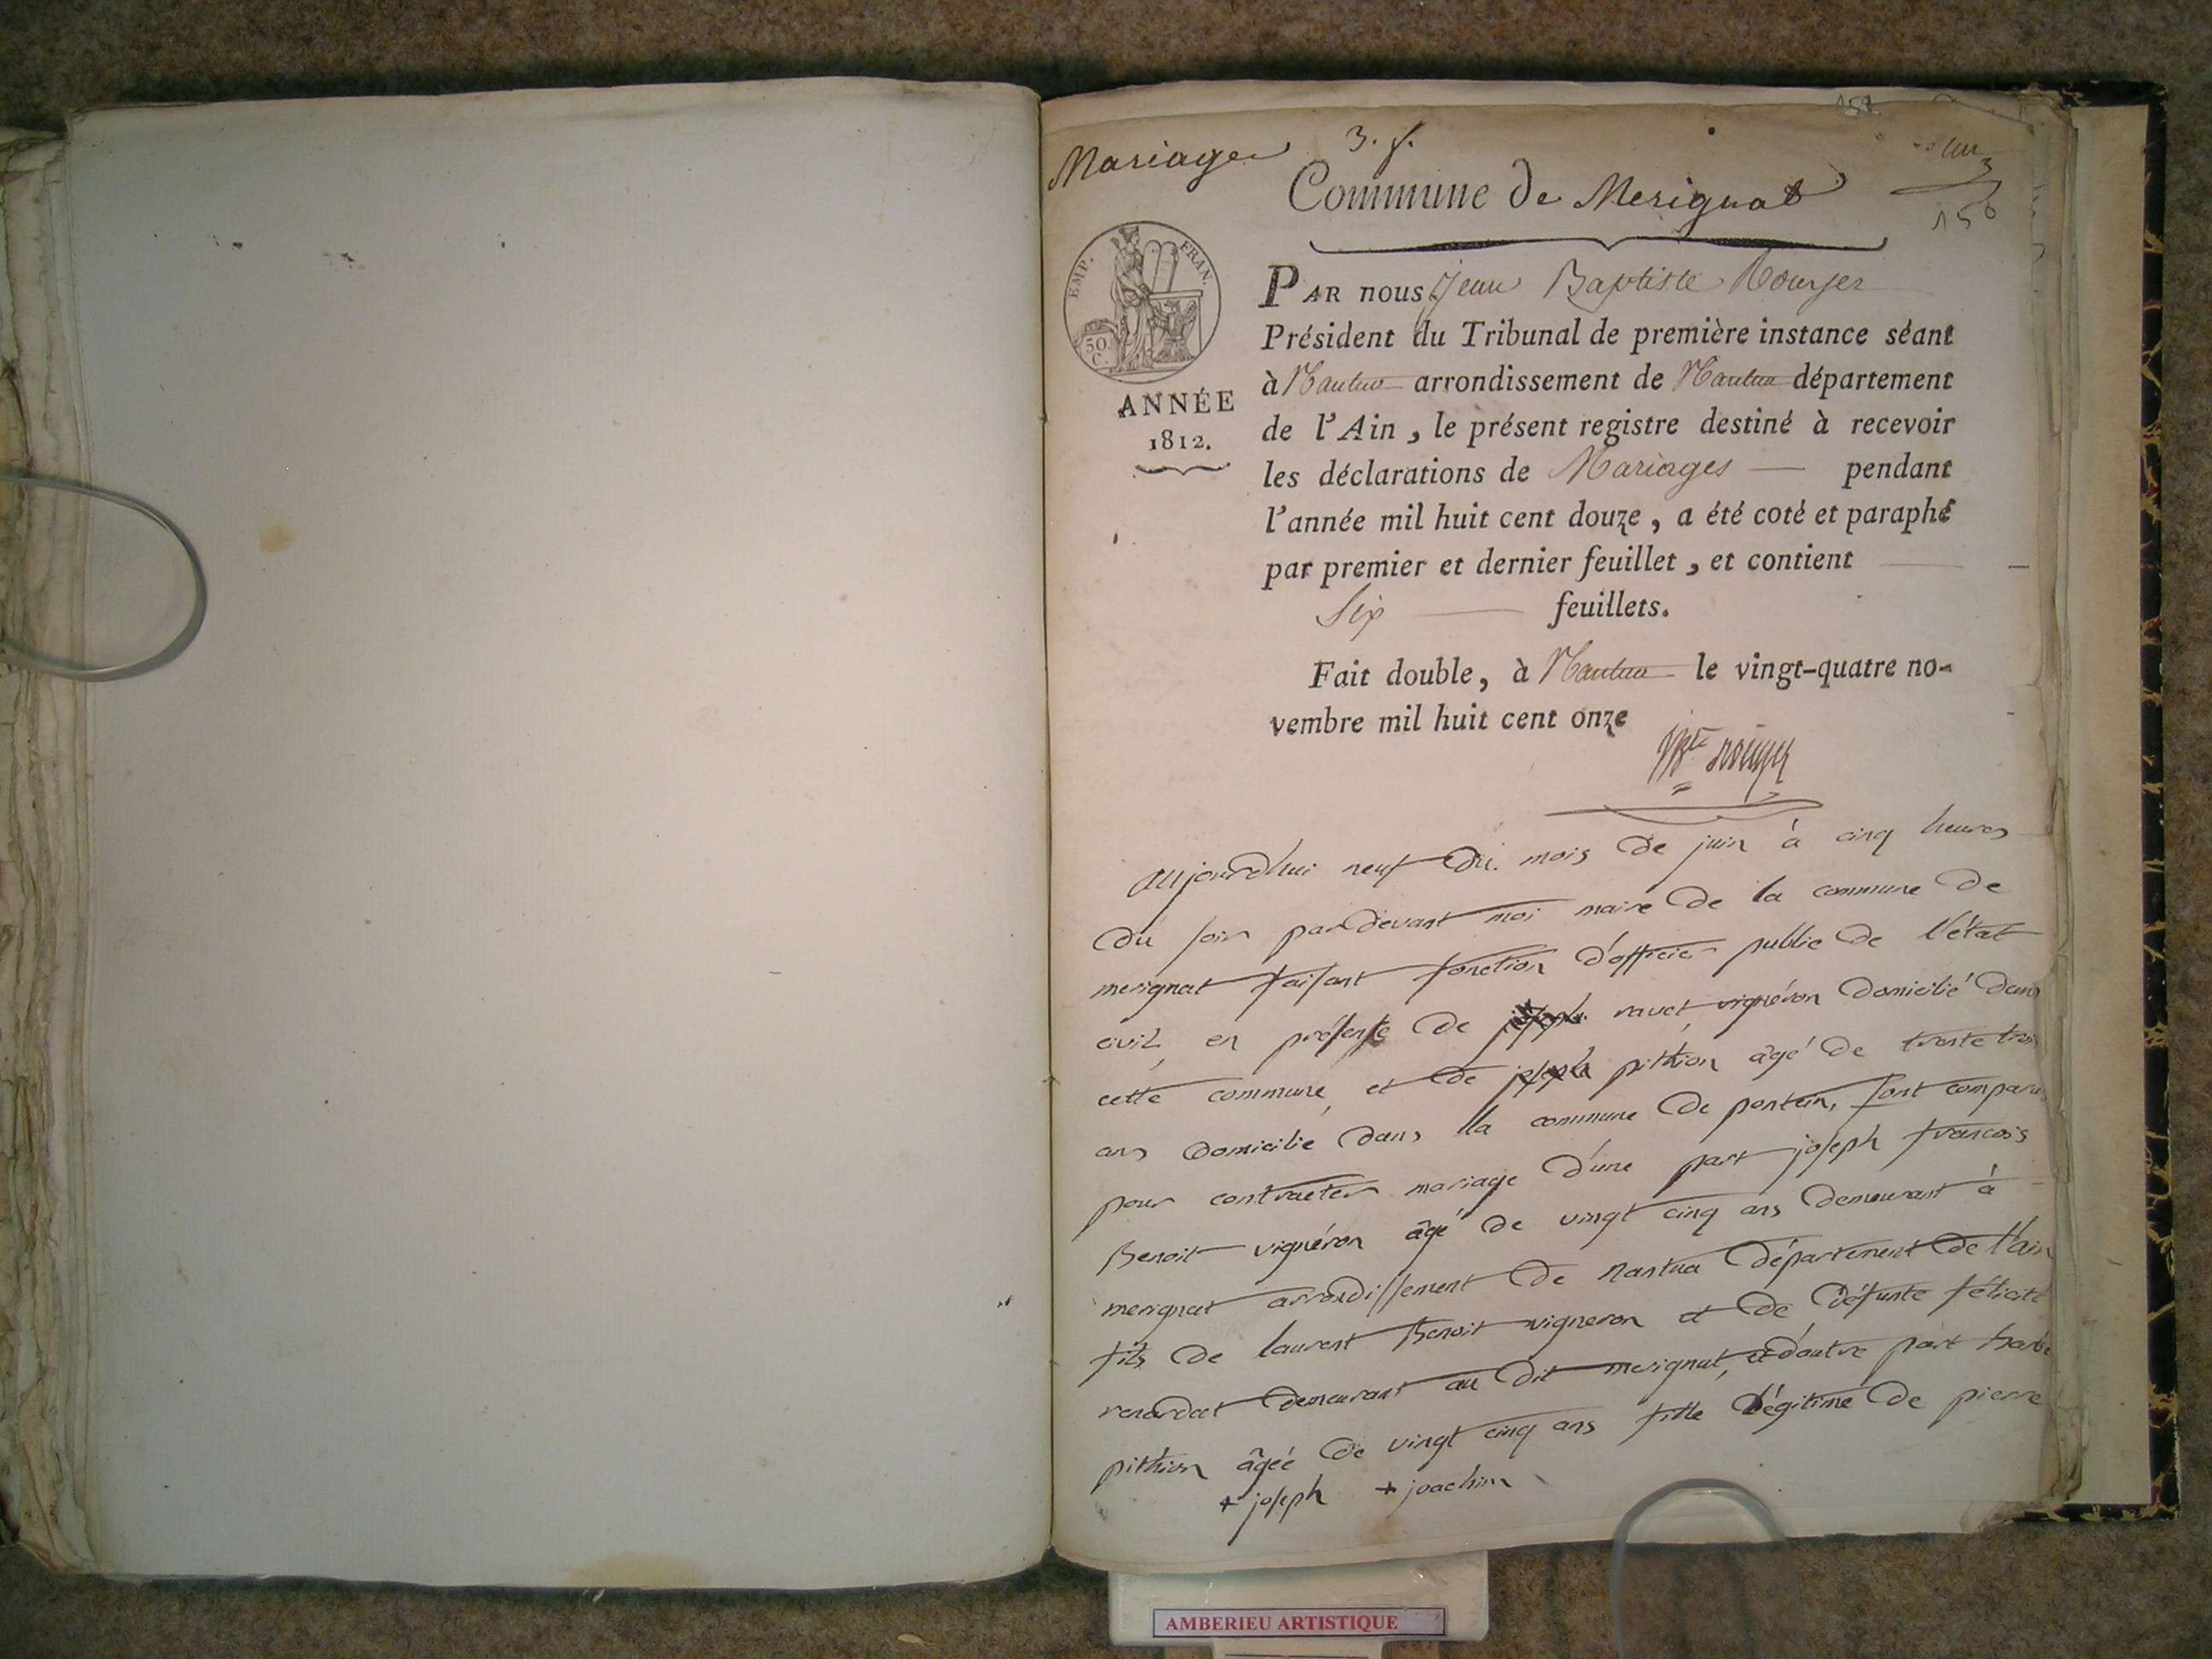 158
Mariages
3. f.
Commune de Merignat
un
3
156
EMP. FRAN.
50 C.
ANNÉE
1812.
PAR nous Jean Baptiste Rouyer
Président du Tribunal de première instance séant
à Nantua arrondissement de Nantua département
de l'Ain, le présent registre destiné à recevoir
les déclarations de Mariages pendant
l'année mil huit cent douze, a été coté et paraphé
par premier et dernier feuillet, et contient
Six feuillets.
Fait double, à Nantua le vingt-quatre no-
vembre mil huit cent onze
aujourdhui neuf du mois de juin à cinq heures
du soir pardevant moi maire de la commune de
merignat faisant fonction d'officier public de l'état
civil, en présense de ravet vignéron domicilié dans
cette commune, et de joseph pithion âgé de trente trois
ans domicilié dans la commune de pontein, sont comparu
pour contracter mariage d'une part joseph francois
Benoit vignéron âgé de vingt cinq ans demeurant à
merignat arrondissement de nantua département de l'ain
fils de laurent Benoit vigneron et de défunte félicité
renardat demeurant au dit merignat, et d'autre part
pithion âgée de vingt cinq ans fille légitime de pierre
+ joseph + joachim
AMBERIEU ARTISTIQUE